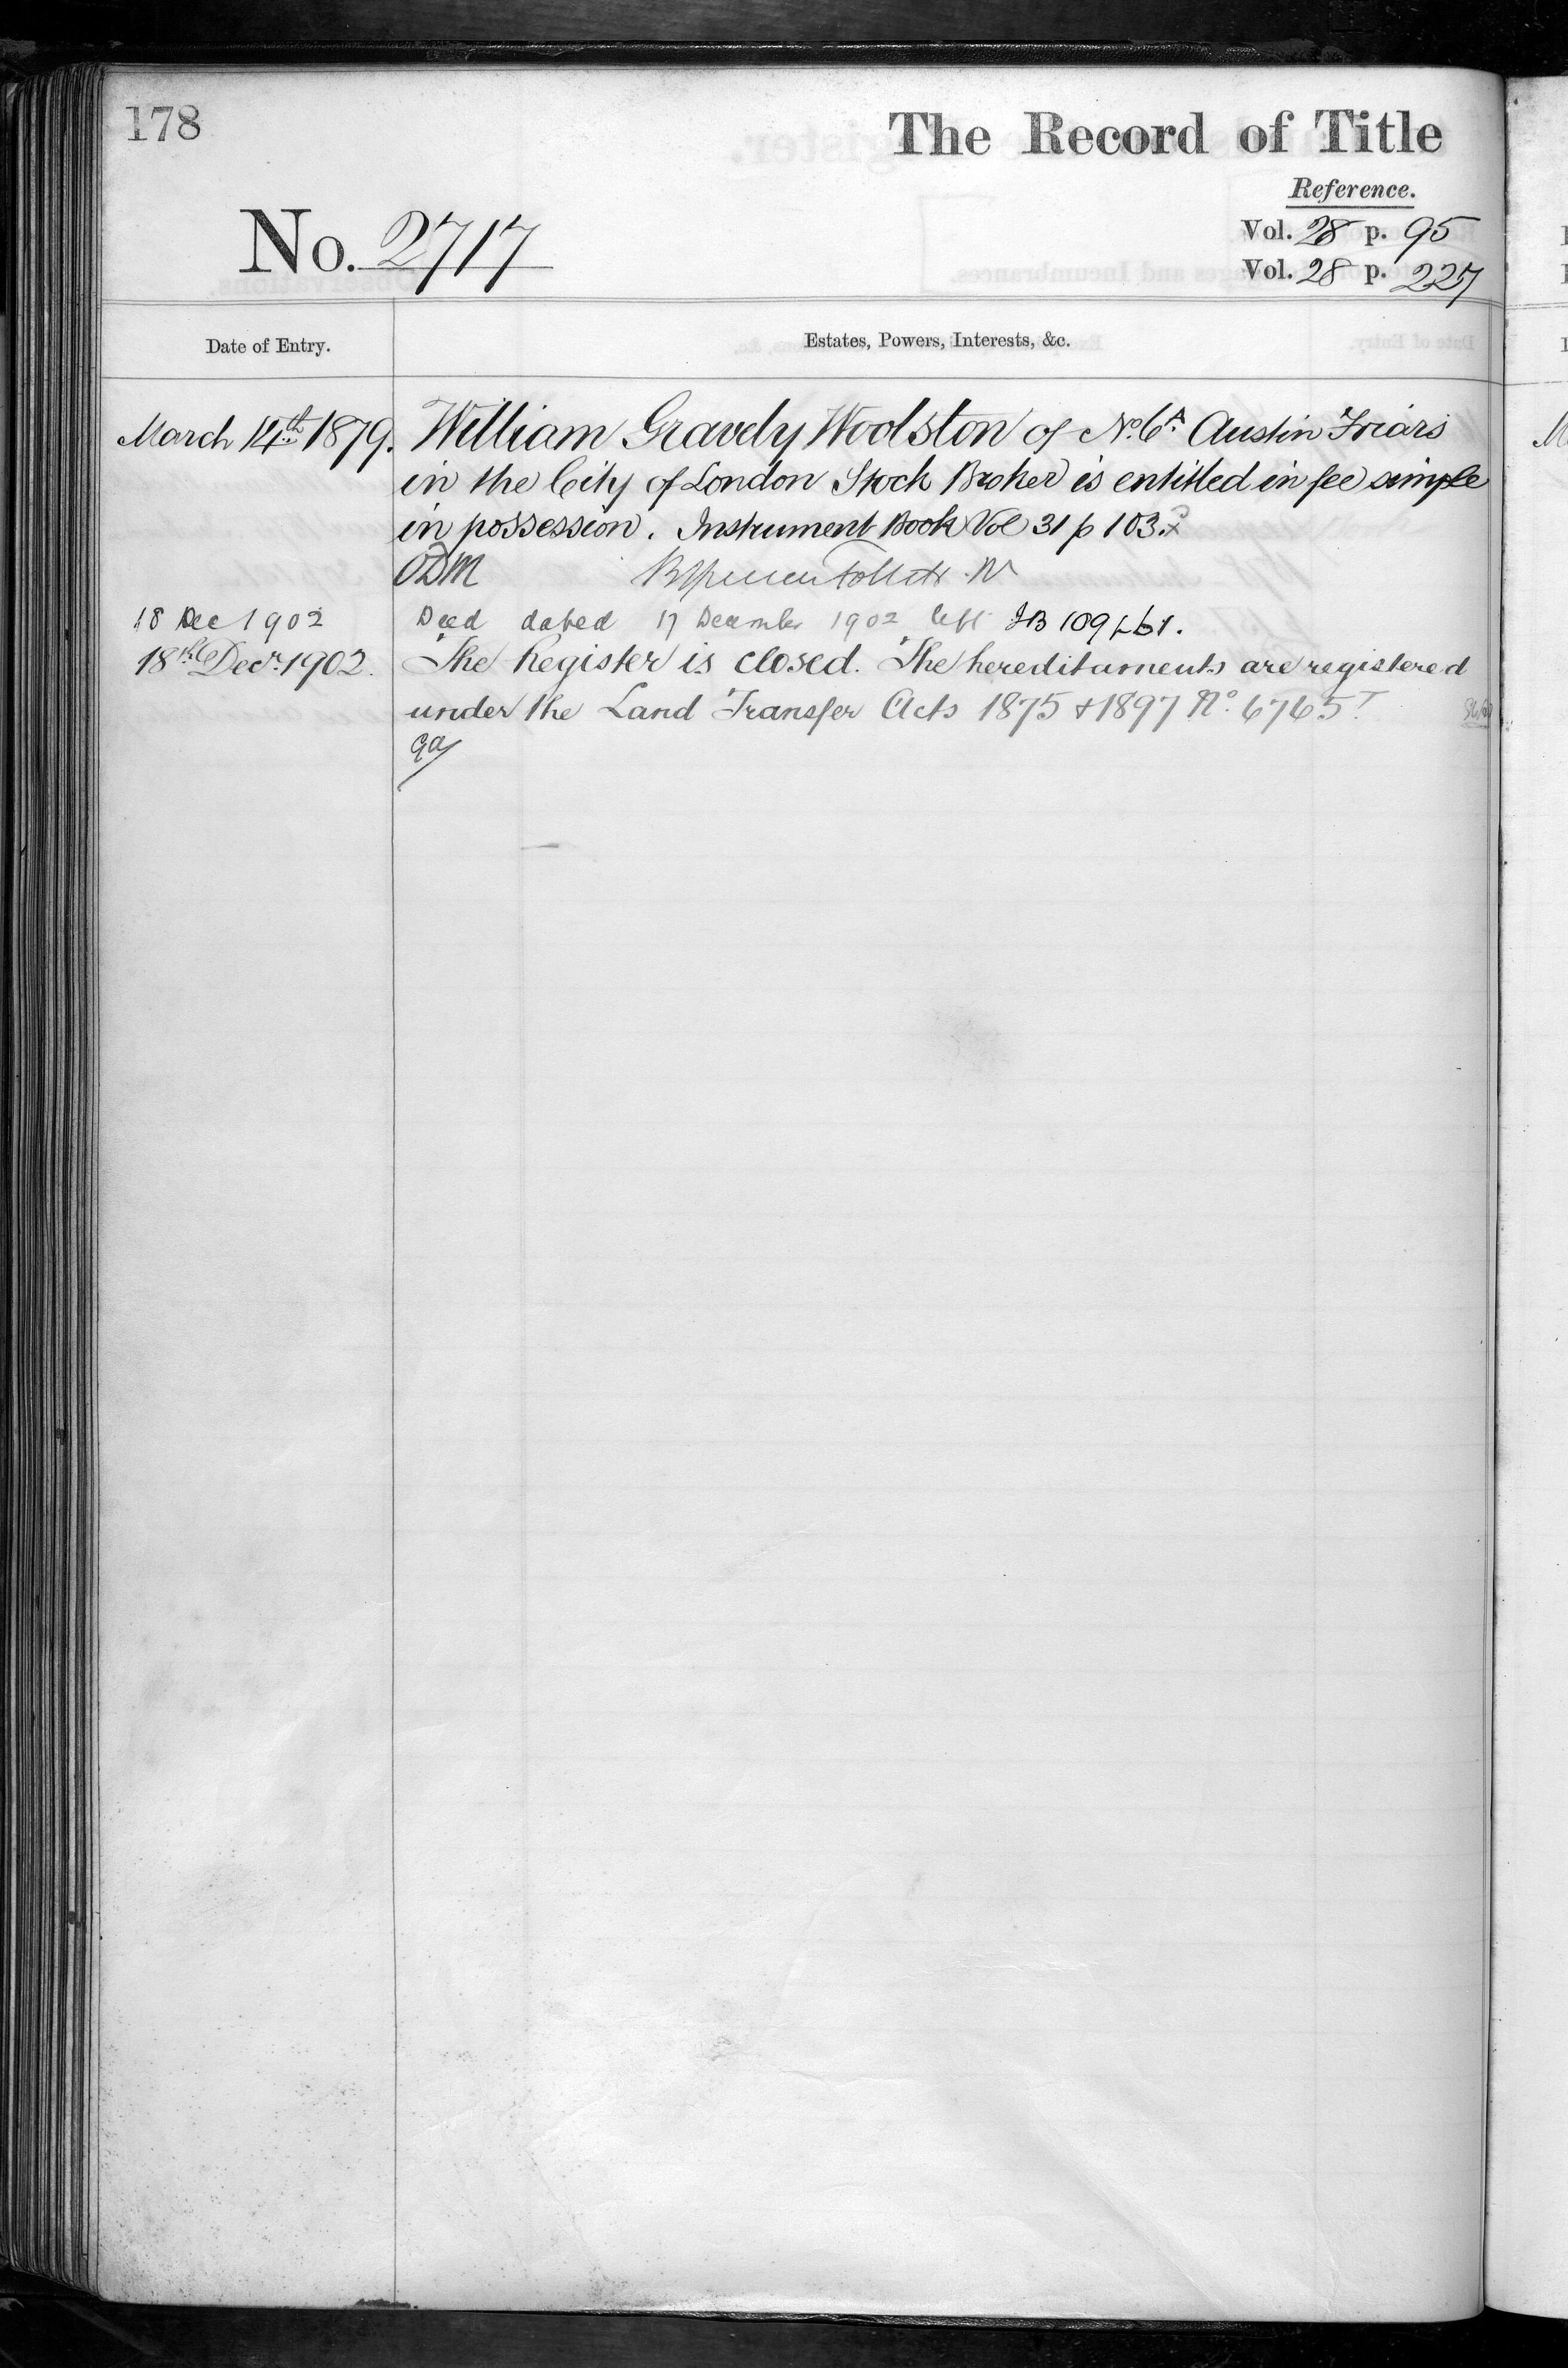 178
The Record of Title
Reference.
No. 2717
Vol. 28 p. 95
Vol. 28 p. 227
Date of Entry.
Estates, Powers, Interests, &c.
March 14th 1879. William Gravely Woolston of No. 6A Austin Friars
in the City of London Stock Broker is entitled in fee simple
in possession. Instrument Book Vol 31 p 103.
ODM
18 Dec 1902 Deed dated 17 December 1902 left IB 109
18th Decr. 1902. The Register is closed. The hereditaments are registered
under the Land Transfer Acts 1875 & 1897 No. 6765